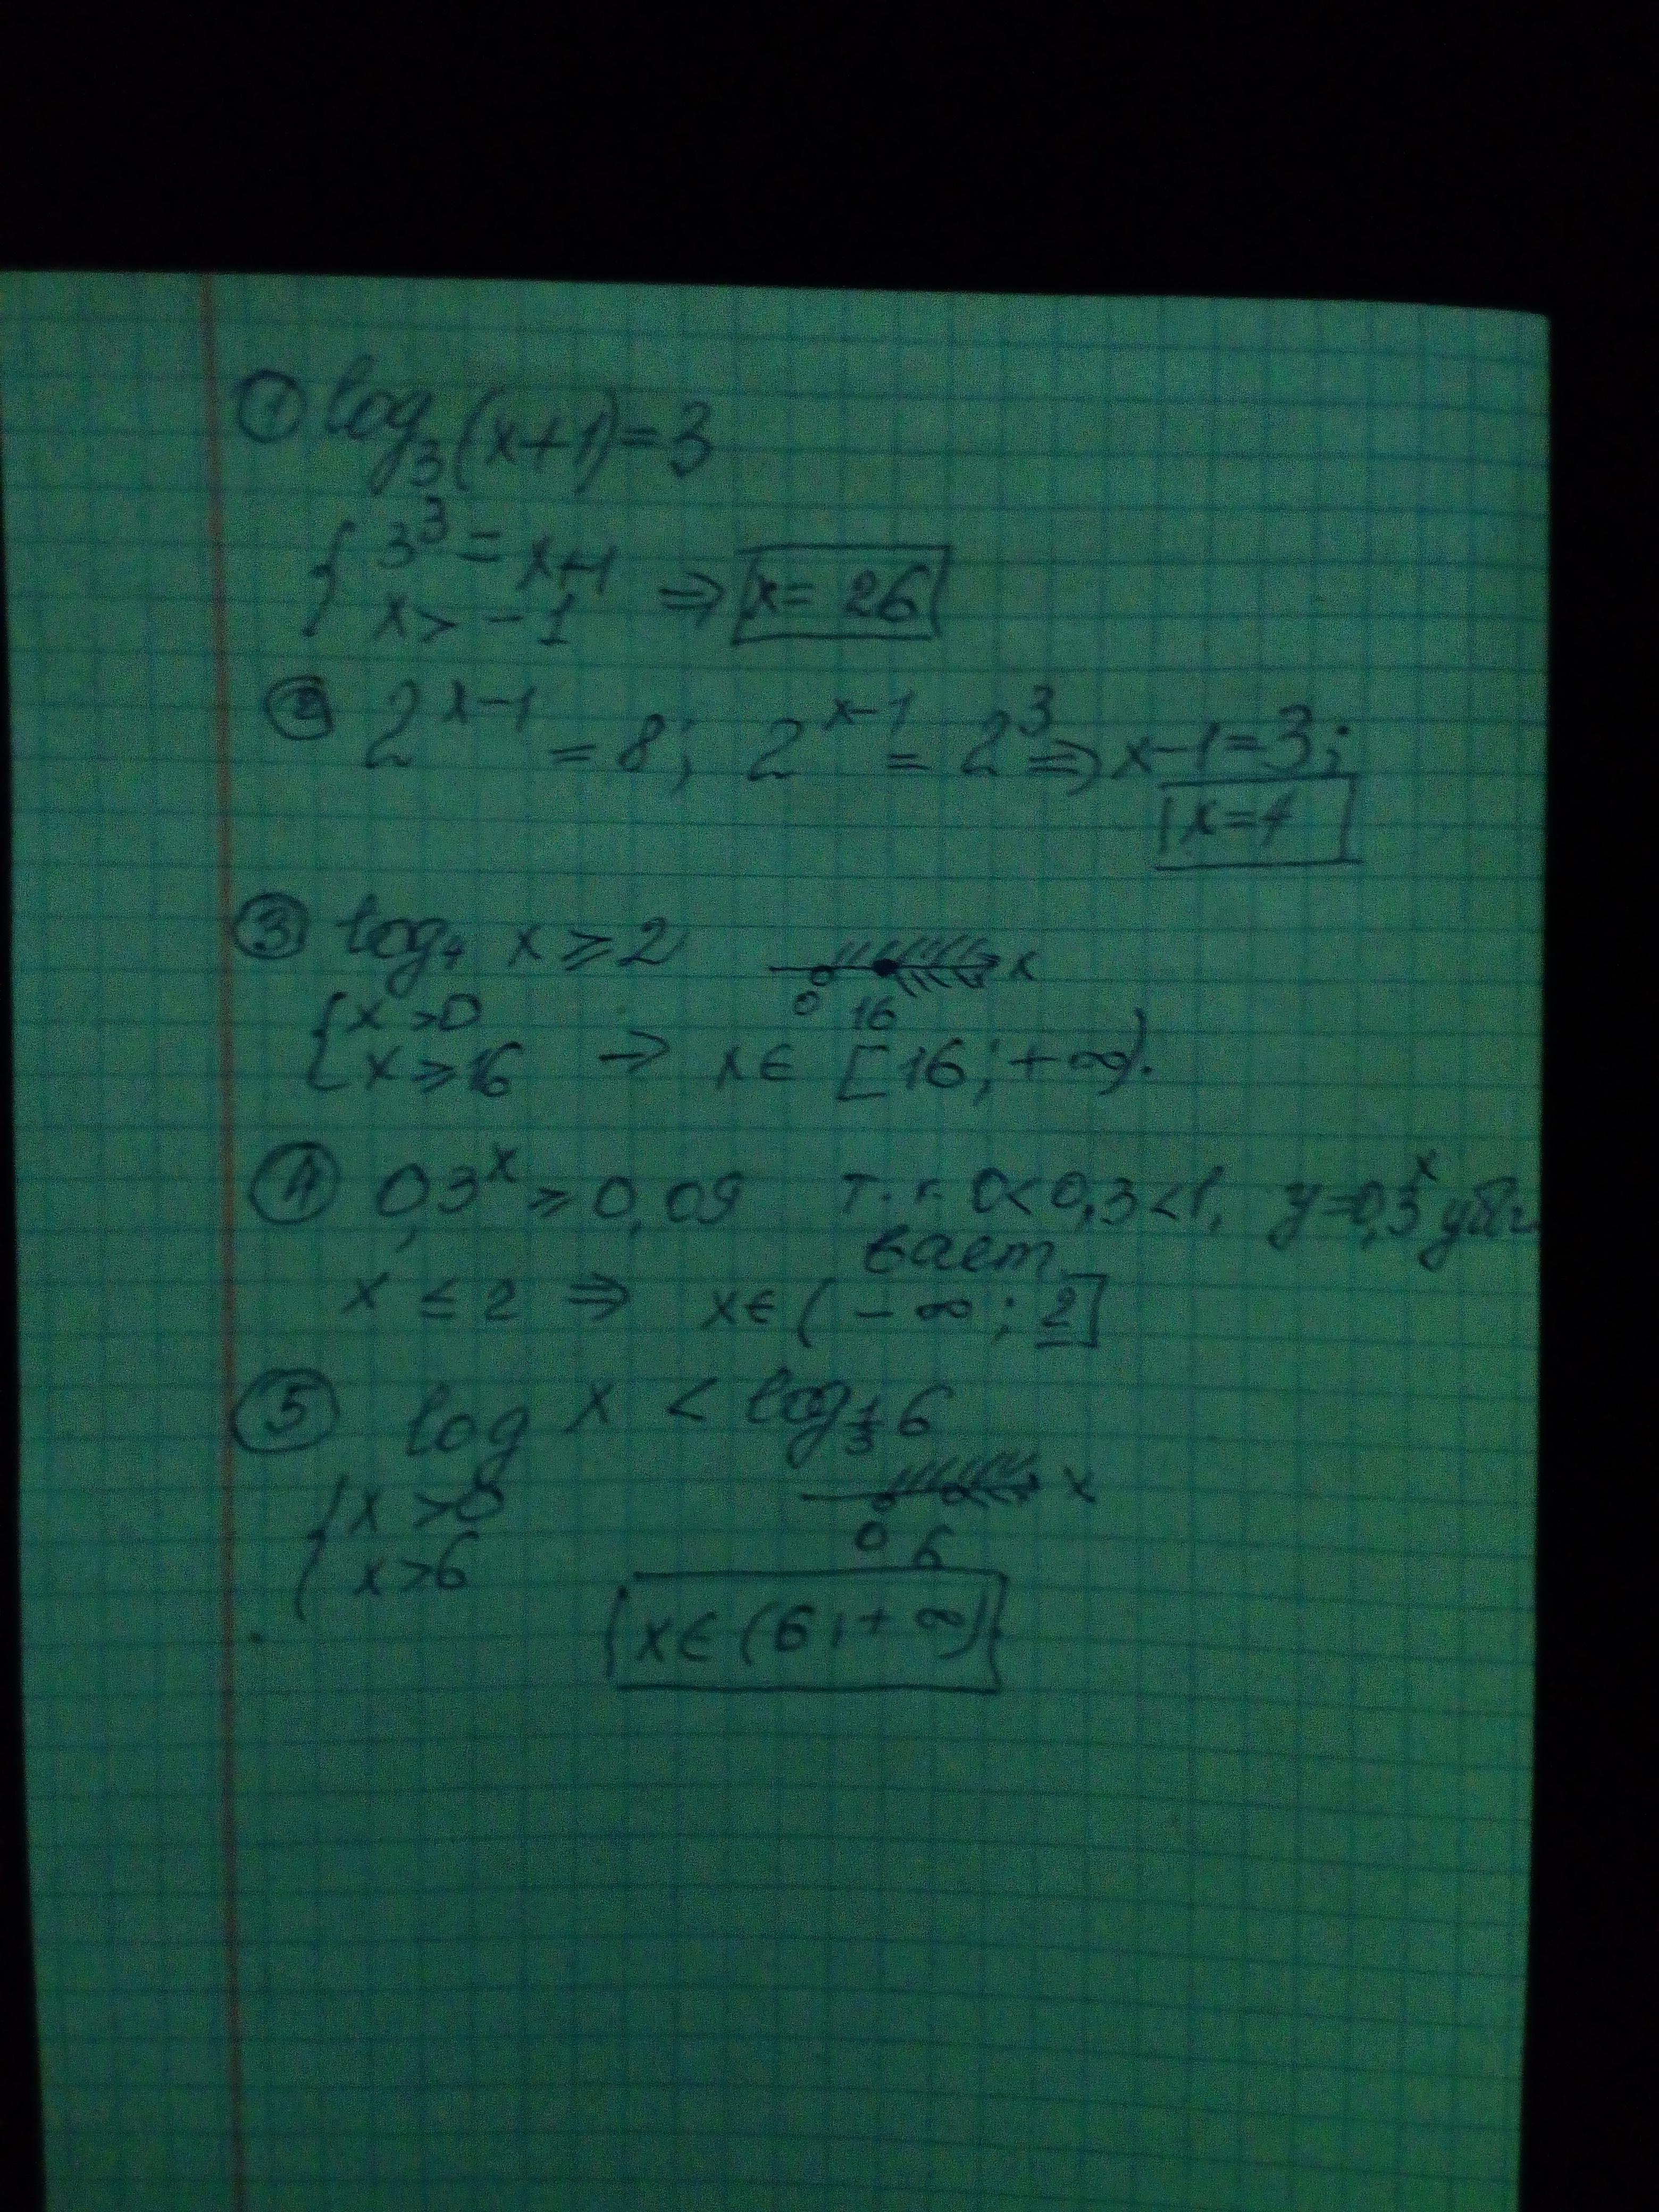 ① log₃(x+1)=3
{ 3³ = x+1
x > -1 ⇒ x = 26
② 2^(x-1) = 8; 2^(x-1) = 2³ ⇒ x-1=3;
x=4
③ log₄ x ≥ 2 x
0 16
{ x >0
x ≥ 16 → x ∈ [16; +∞).
④ 0,3^x ≥ 0,09 т.к. 0<0,3<1, y=0,3^x убы
вает
x ≤ 2 ⇒ x ∈ (-∞; 2]
⑤ log x < log_(1/3) 6
{ x >0 x
0 6
x >6
x ∈ (6; +∞).